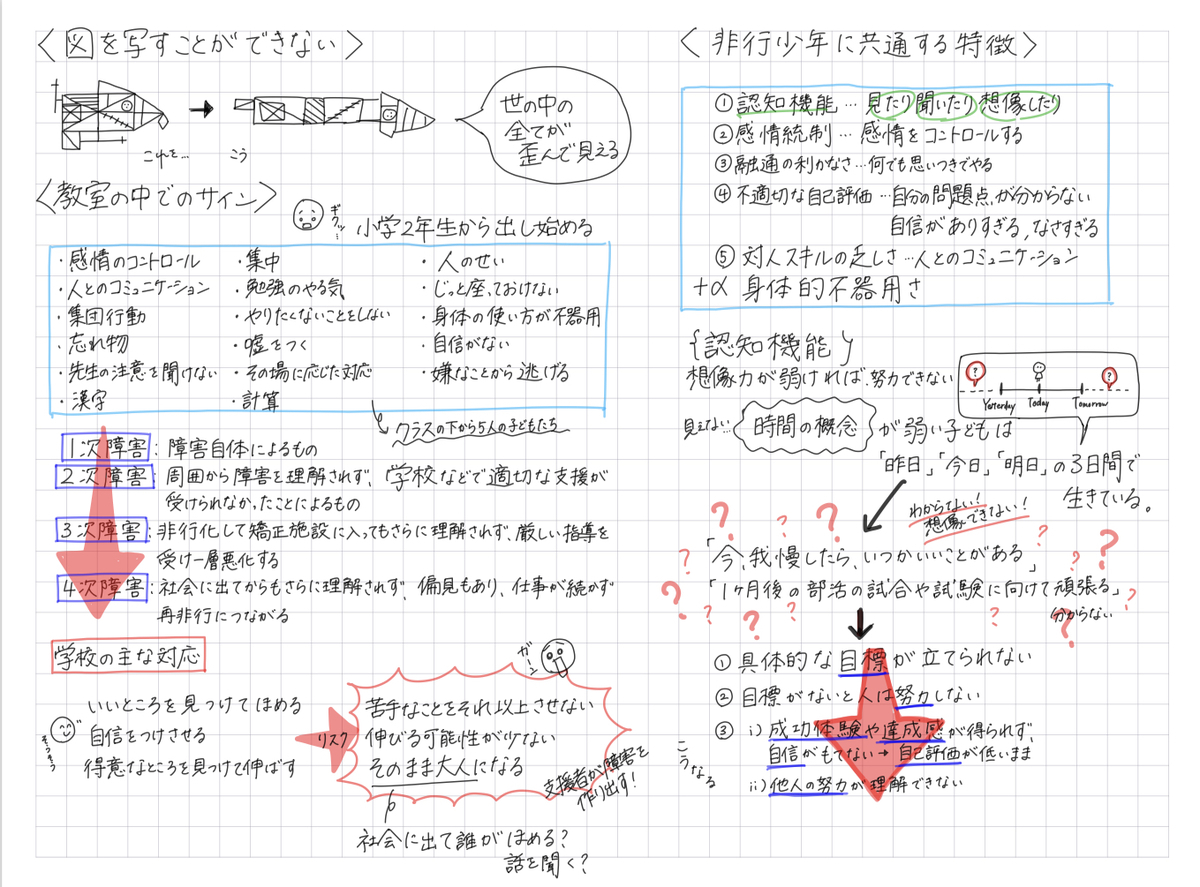 〈図を写すことができない〉
これを… こう
世の中の
全てが
歪んで見える
〈教室の中でのサイン〉
ギクッ…
小学2年生から出し始める
・感情のコントロール ・集中 ・人のせい
・人とのコミュニケーション ・勉強のやる気 ・じっと座っておけない
・集団行動 ・やりたくないことをしない ・身体の使い方が不器用
・忘れ物 ・嘘をつく ・自信がない
・先生の注意を聞けない ・その場に応じた対応 ・嫌なことから逃げる
・漢字 ・計算
クラスの下から5人の子どもたち
1次障害:障害自体によるもの
2次障害:周囲から障害を理解されず、学校などで適切な支援が
受けられなかったことによるもの
3次障害:非行化して矯正施設に入ってもさらに理解されず、厳しい指導を
受け一層悪化する
4次障害:社会に出てからもさらに理解されず、偏見もあり、仕事が続かず
再非行につながる
学校の主な対応
いいところを見つけてほめる
自信をつけさせる
得意なところを見つけて伸ばす
そうそう
リスク
ガーン
苦手なことをそれ以上させない
伸びる可能性が少ない
そのまま大人になる
支援者が障害を
作り出す!
社会に出て誰がほめる?
話を聞く?
〈非行少年に共通する特徴〉
①認知機能…見たり聞いたり想像したり
②感情統制…感情をコントロールする
③融通の利かなさ…何でも思いつきでやる
④不適切な自己評価…自分の問題点が分からない
自信がありすぎる,なさすぎる
⑤対人スキルの乏しさ…人とのコミュニケーション
+α 身体的不器用さ
{認知機能}
想像力が弱ければ努力できない
? ?
Yesterday Today Tomorrow
見えない… 時間の概念 が弱い子どもは
「昨日」「今日」「明日」の3日間で
生きている。
わからない!
想像できない!
「今、我慢したら、いつかいいことがある」
「1ヶ月後の部活の試合や試験に向けて頑張る」
分からない
①具体的な目標が立てられない
②目標がないと人は努力しない
③ⅰ)成功体験や達成感が得られず、
自信がもてない→自己評価が低いまま
ⅱ)他人の努力が理解できない
こうなる